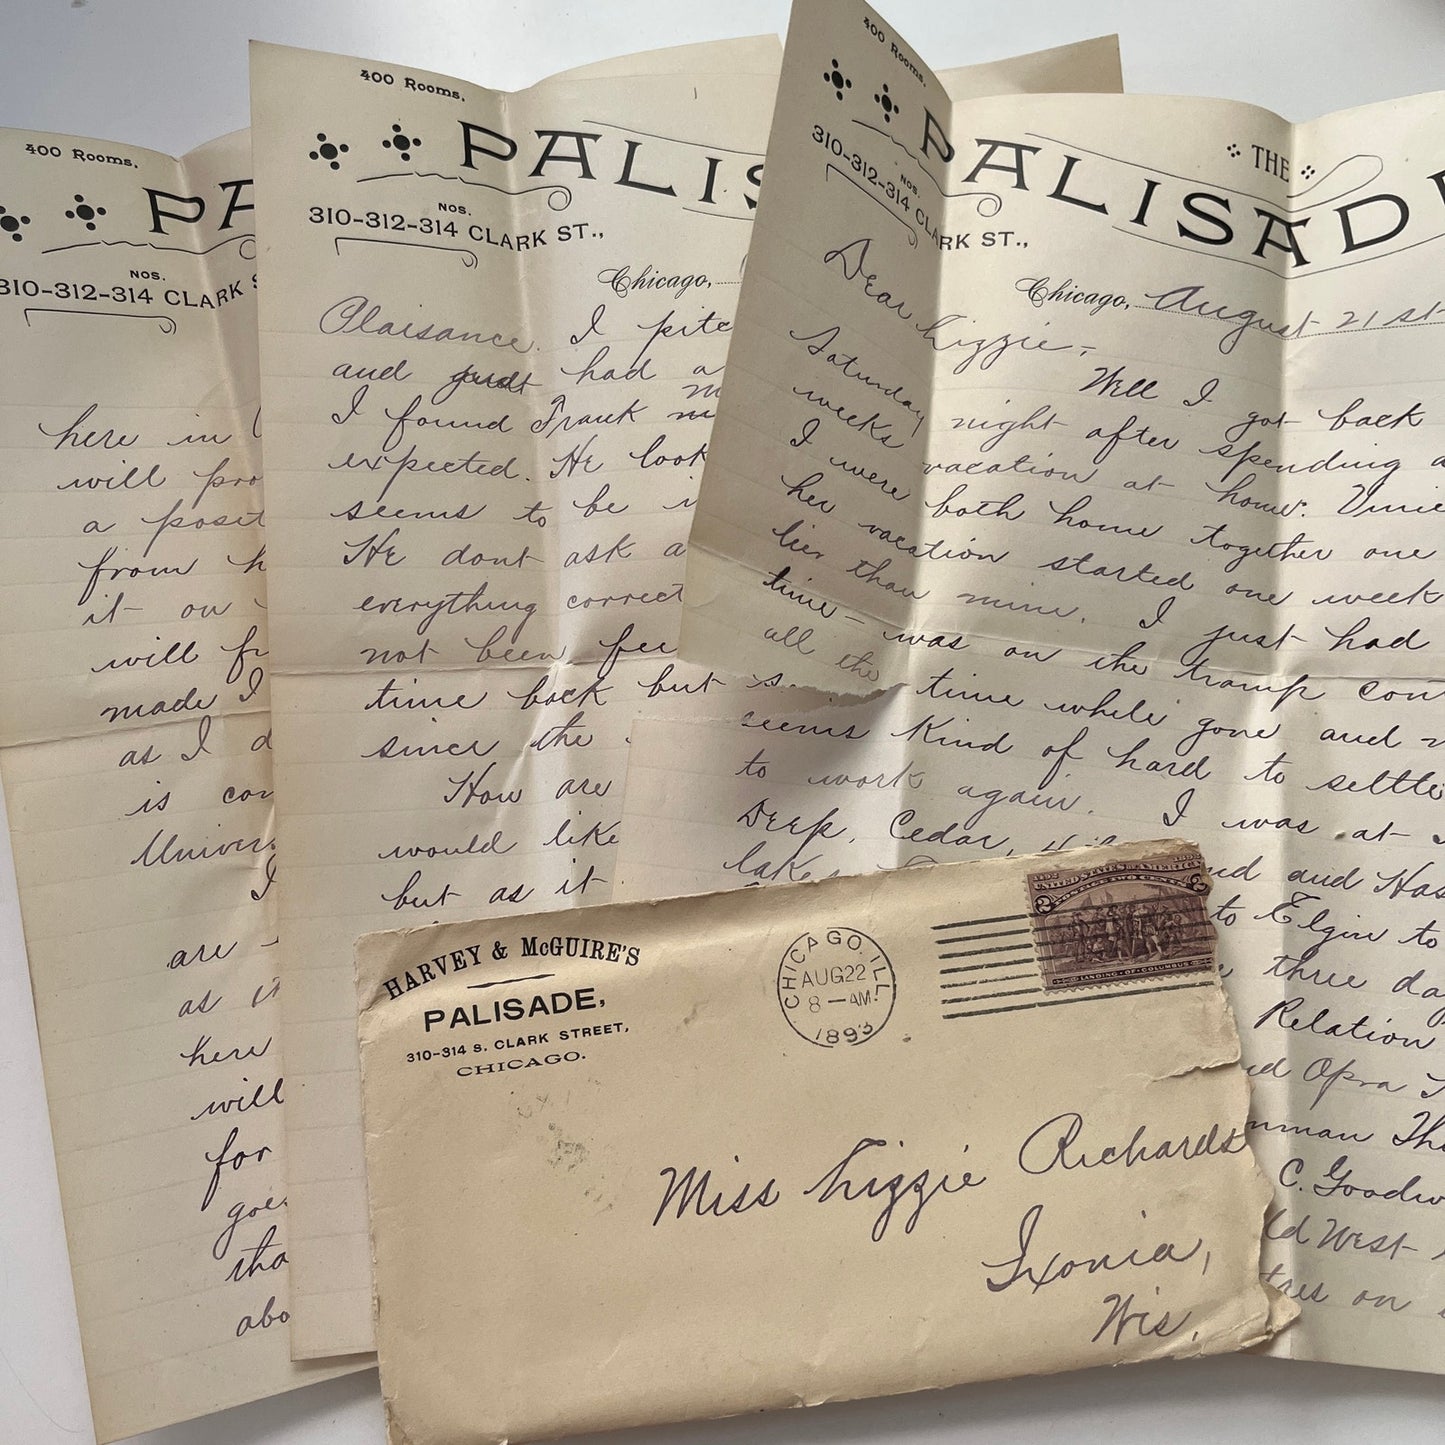 400 Rooms.
PA
NOS.
310-312-314 CLARK S
here in
will pro
a posit
from h
it on
will fr
made I
as I d
is con
Univer
I
are
as it
here
will
for
goes
tha
abo
400 Rooms.
PALIS
NOS.
310-312-314 CLARK ST.,
Chicago,
Plaisance. I pitc
and had a
I found Frank
expected. He look
seems to be i
He dont ask a
everything correct
not been fee
time back but s
since the
How are
would like
but as it
400 Rooms.
THE
PALISAD
NOS.
310-312-314 CLARK ST.,
Chicago, August 21st
Dear Lizzie,
Well I got back
Saturday night after spending a
weeks vacation at home. Vinie
I were both home together one
her vacation started one week
lier than mine. I just had
time - was on the tramp con
all the time while gone and
seems kind of hard to settle
to work again. I was at
Deep, Cedar, nd and Has
lakes to Elgin to
three day
Relation
nd Opra
nman Th
C. Goodw
ld West
tres on
HARVEY & McGUIRE'S
PALISADE,
310-314 S. CLARK STREET,
CHICAGO.
CHICAGO, ILL.
AUG 22
8 - AM
1893
1492 1892
UNITED STATES OF AMERICA
POSTAGE TWO CENTS
2 2
LANDING OF COLUMBUS
Miss Lizzie Richards
Ixonia,
Wis.